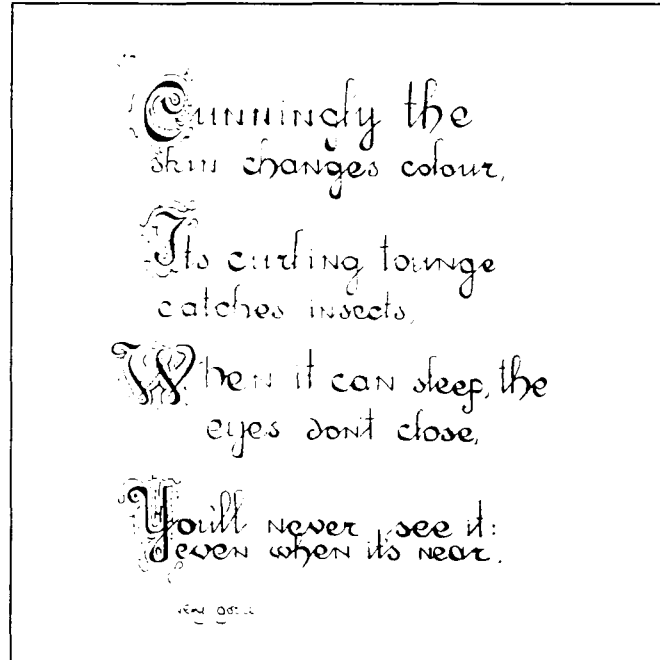 Cunningly the
skin changes colour,
Its curling tounge
catches insects,
When it can sleep, the
eyes dont close,
You'll never see it:
even when its near.